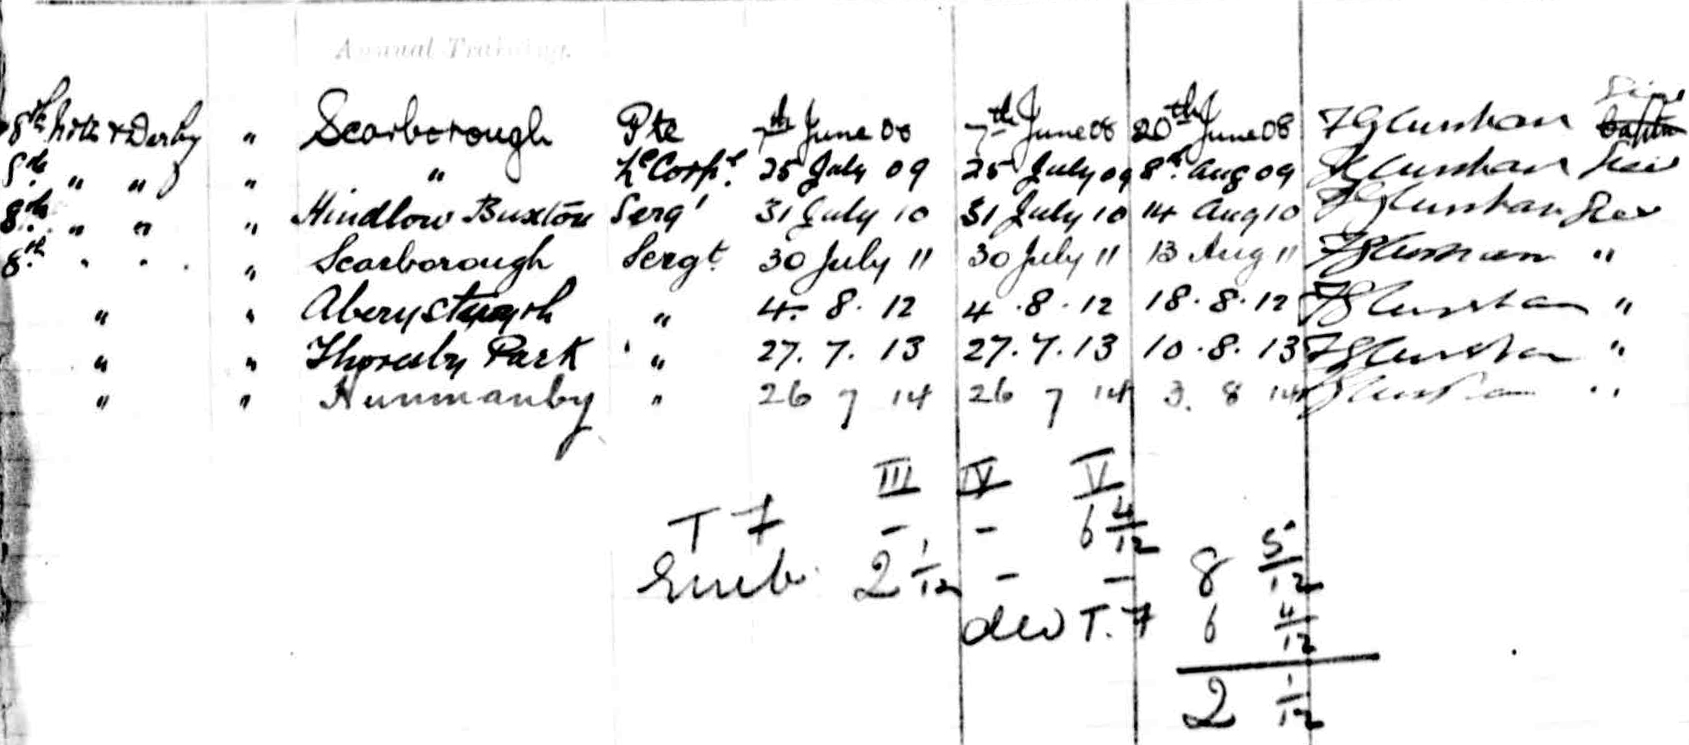 Annual Training.
8th Notts & Derby " Scarborough Pte 7th June 08 7th June 08 20th June 08
8th " " " " L/Corpl. 25 July 09 25 July 09 8th Aug 09
8th " " " Hindlow Buxton Sergt 31 July 10 31 July 10 14 Aug 10
8th " " " Scarborough Sergt. 30 July 11 30 July 11 13 Aug 11 "
" " Aberystwyth " 4. 8. 12 4. 8. 12 18. 8. 12 "
" " Thoresby Park " 27. 7. 13 27. 7. 13 10. 8. 13 "
" " Hunmanby " 26 7 14 26 7 14 3. 8 14 "
III IV V
T F - - 6 4/12
Emb. 2 1/12 - - 8 5/12
ded T. F 6 4/12
2 1/12